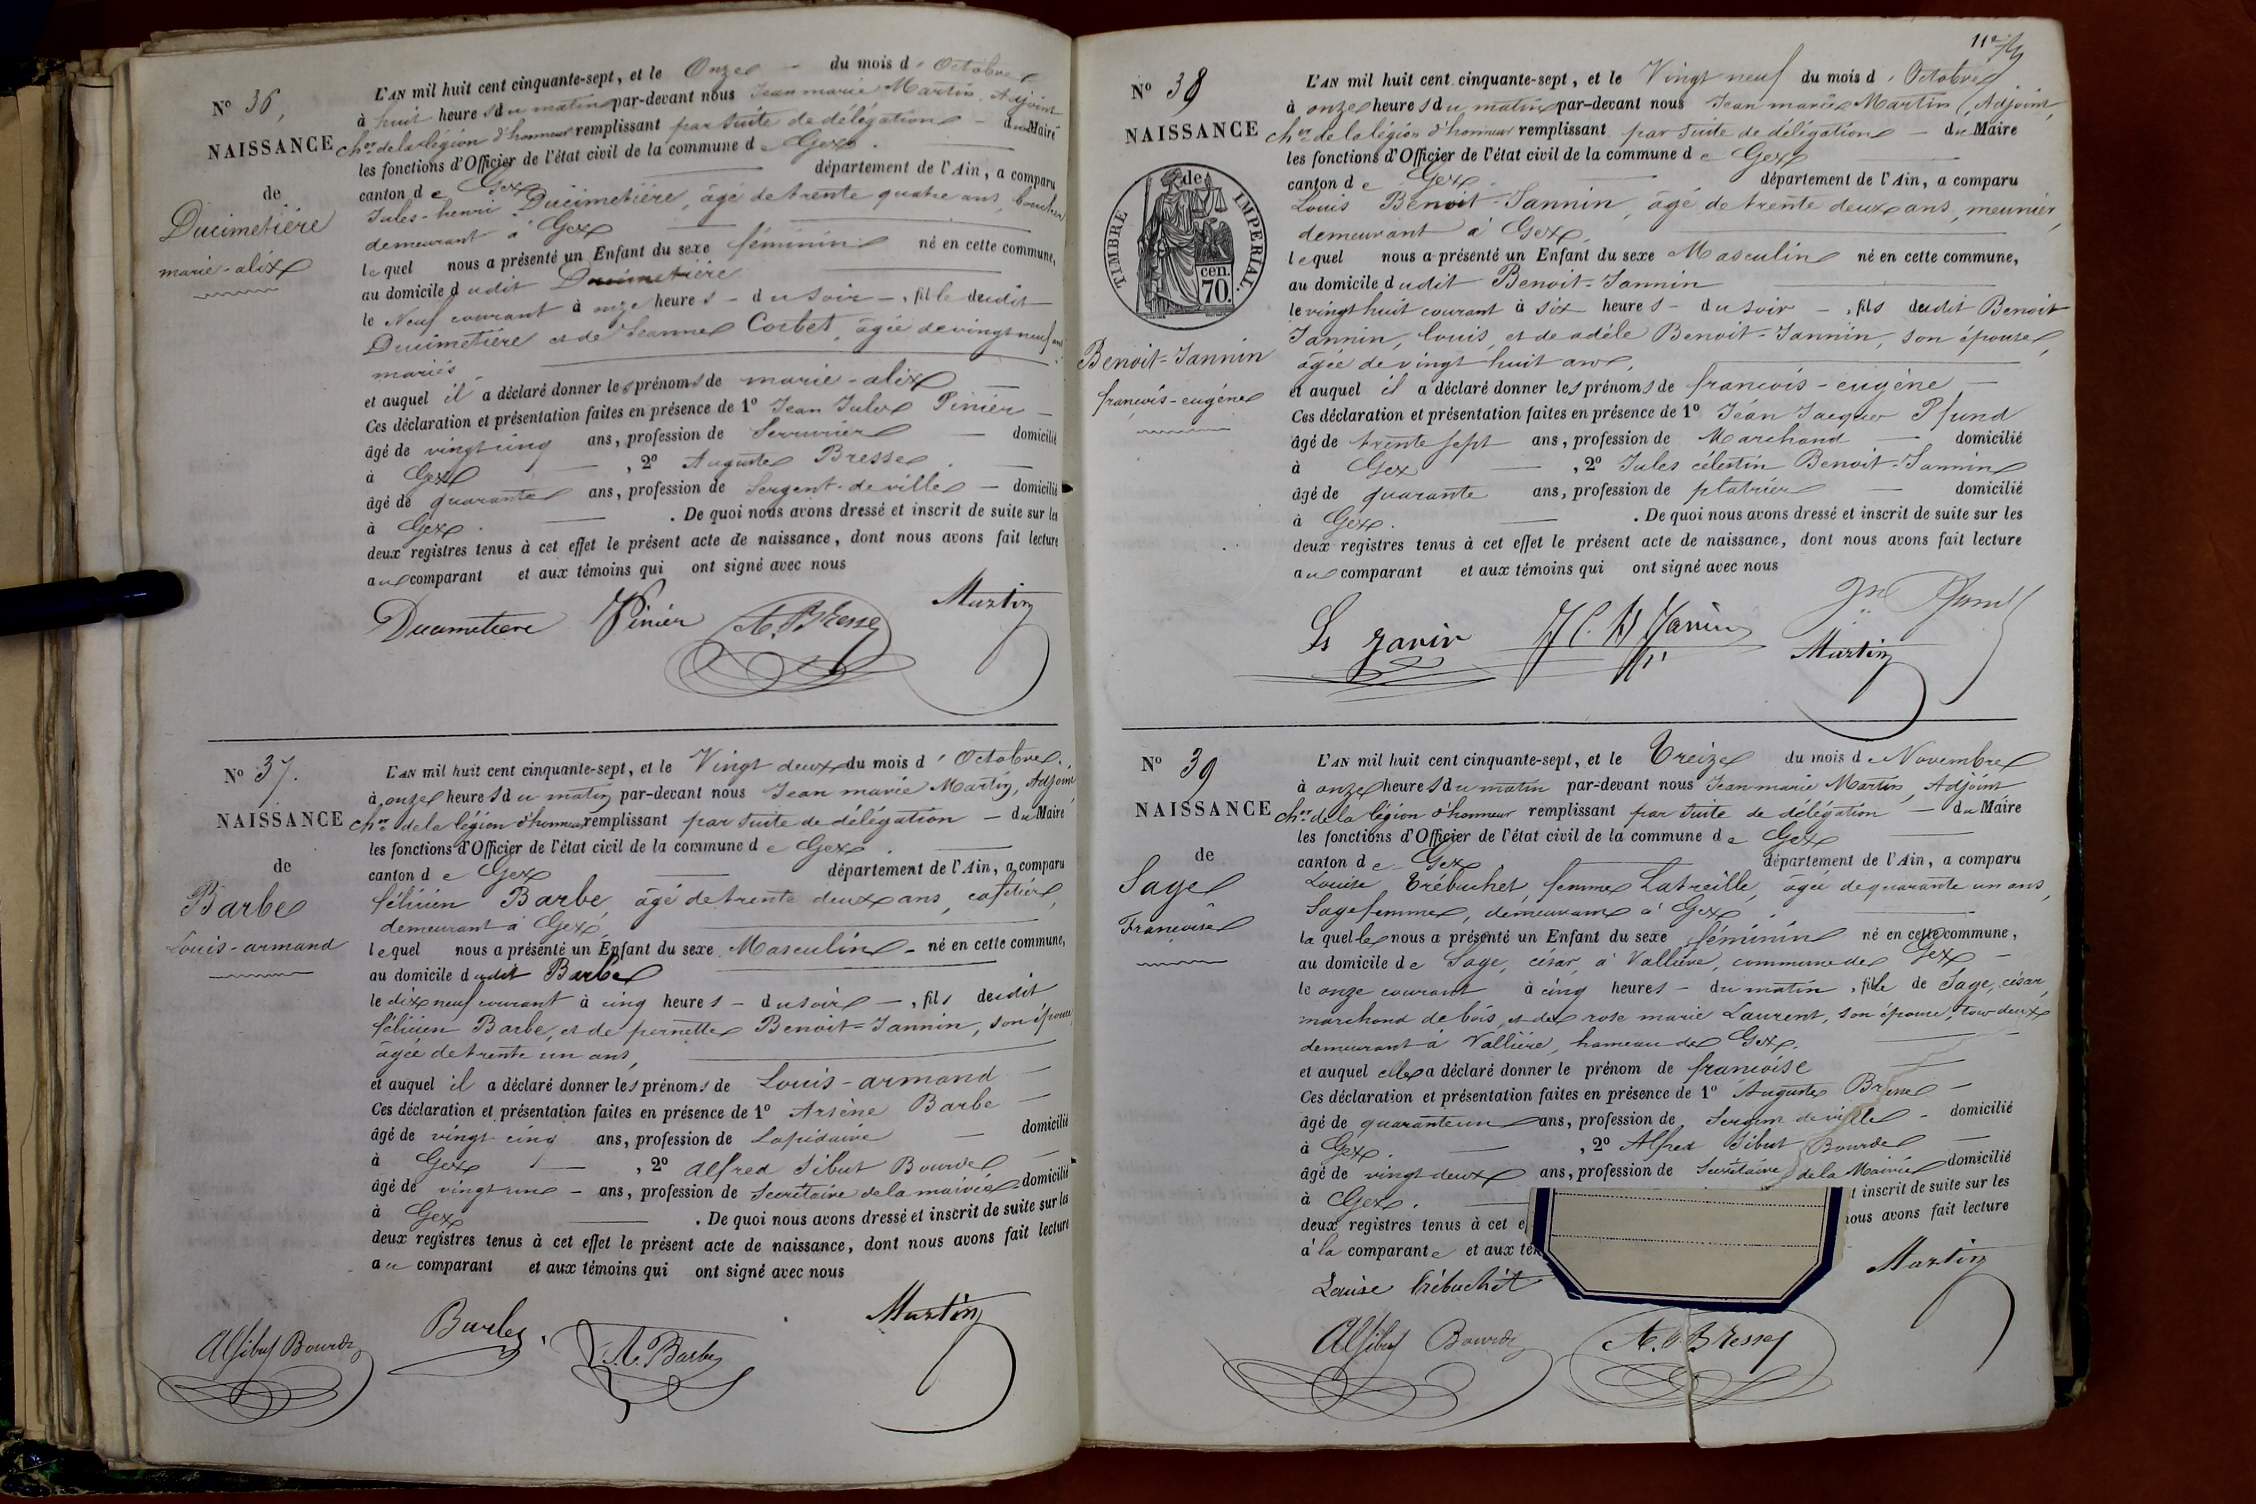 No 36,
NAISSANCE
de
Ducimetière
marie-alix
L'AN mil huit cent cinquante-sept, et le Onze du mois d'Octobre
à huit heures du matin par-devant nous Jean marie Martin, Adjoint
cher de la légion d'honneur remplissant par suite de délégation du Maire
les fonctions d'Officier de l'état civil de la commune de Gex
canton de Gex département de l'Ain, a comparu
Jules-henri Ducimetière, âgé de trente quatre ans, boucher
demeurant à Gex
lequel nous a présenté un Enfant du sexe féminin né en cette commune,
au domicile dudit Ducimetière
le Neuf courant à onze heures du soir, fille dudit
Ducimetière et de Jeanne Corbet, âgée de vingt neuf ans
mariés
et auquel il a déclaré donner les prénoms de marie-alix
Ces déclaration et présentation faites en présence de 1o Jean Jules Pinier
âgé de vingt cinq ans, profession de Serrurier domicilié
à Gex, 2o Auguste Bresse
âgé de quarante ans, profession de Sergent-de ville domicilié
à Gex. De quoi nous avons dressé et inscrit de suite sur les
deux registres tenus à cet effet le présent acte de naissance, dont nous avons fait lecture
au comparant et aux témoins qui ont signé avec nous
Ducimetiere Pinier A. Bresse Martin
No 37.
NAISSANCE
de
Barbe
Louis-armand
L'AN mil huit cent cinquante-sept, et le Vingt deux du mois d'Octobre
à onze heures du matin par-devant nous Jean marie Martin, Adjoint
cher de la légion d'honneur remplissant par suite de délégation du Maire
les fonctions d'Officier de l'état civil de la commune de Gex
canton de Gex département de l'Ain, a comparu
félicien Barbe, âgé de trente deux ans, cafetier,
demeurant à Gex,
lequel nous a présenté un Enfant du sexe Masculin né en cette commune,
au domicile dudit Barbe
le dix neuf courant à cinq heures du soir, fils dudit
félicien Barbe, et de pernette Benoit=Jannin, son épouse
âgée de trente un ans,
et auquel il a déclaré donner les prénoms de Louis-armand
Ces déclaration et présentation faites en présence de 1o Arsène Barbe
âgé de vingt cinq ans, profession de Lapidaire domicilié
à Gex, 2o alfred Sibut Bourde
âgé de vingt un ans, profession de Secrétaire de la mairie domicilié
à Gex. De quoi nous avons dressé et inscrit de suite sur les
deux registres tenus à cet effet le présent acte de naissance, dont nous avons fait lecture
au comparant et aux témoins qui ont signé avec nous
Martin
Al Sibut Bourde Barbe A. Barbe
No 38
NAISSANCE
de
TIMBRE IMPERIAL.
cen.
70.
Benoit=Jannin
françois-eugène
L'AN mil huit cent cinquante-sept, et le Vingt neuf du mois d'Octobre
à onze heures du matin par-devant nous Jean marie Martin, Adjoint,
cher de la légion d'honneur remplissant par suite de délégation du Maire
les fonctions d'Officier de l'état civil de la commune de Gex
canton de Gex département de l'Ain, a comparu
Louis Benoit-Jannin, âgé de trente deux ans, meunier,
demeurant à Gex,
lequel nous a présenté un Enfant du sexe Masculin né en cette commune,
au domicile dudit Benoit-Jannin
le vingt huit courant à six heures du soir, fils dudit Benoit
Jannin, louis, et de adèle Benoit-Jannin, son épouse,
âgée de vingt huit ans,
et auquel il a déclaré donner les prénoms de françois-eugène
Ces déclaration et présentation faites en présence de 1o Jean Jacques Pfund
âgé de trente sept ans, profession de Marchand domicilié
à Gex, 2o Jules célestin Benoit-Jannin
âgé de quarante ans, profession de platrier domicilié
à Gex. De quoi nous avons dressé et inscrit de suite sur les
deux registres tenus à cet effet le présent acte de naissance, dont nous avons fait lecture
au comparant et aux témoins qui ont signé avec nous
Ls Janin J C B Janin Martin
No 39
NAISSANCE
de
Sage
Françoise
L'AN mil huit cent cinquante-sept, et le Treize du mois de Novembre
à onze heures du matin par-devant nous Jean marie Martin, Adjoint
cher de la légion d'honneur remplissant par suite de délégation du Maire
les fonctions d'Officier de l'état civil de la commune de Gex
canton de Gex département de l'Ain, a comparu
Louise Trébuchet, femme Latreille, âgée de quarante un ans,
Sage femme, demeurant à Gex,
laquelle nous a présenté un Enfant du sexe féminin né en cette commune,
au domicile de Sage, césar, à Vallière, commune de Gex
le onze courant à cinq heures du matin, fille de Sage, césar,
marchand de bois, et de rose marie Laurent, son épouse, tous deux
demeurant à Vallière, hameau de Gex.
et auquel elle a déclaré donner le prénom de françoise
Ces déclaration et présentation faites en présence de 1o Auguste Bresse
âgé de quarante un ans, profession de Sergent de ville domicilié
à Gex, 2o Alfred Sibut Bourde
âgé de vingt deux ans, profession de Secrétaire de la Mairie domicilié
à Gex. t inscrit de suite sur les
deux registres tenus à cet e nous avons fait lecture
à la comparante et aux té
Louise trébuchet Martin
Al Sibut Bourde A. Bresse